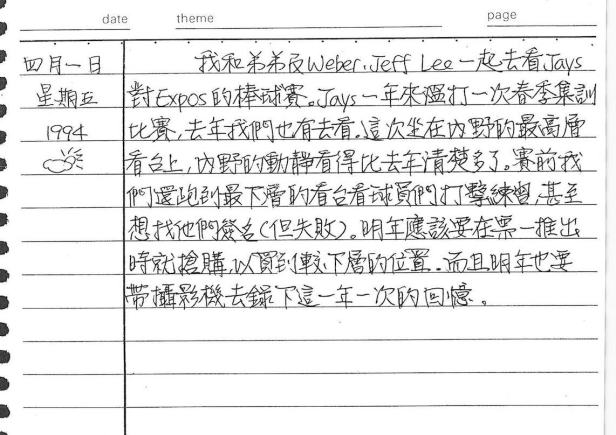 date theme page
四月一日 我和弟弟及Weber、Jeff Lee一起去看Jays
星期五 對Expos的棒球賽。Jays一年來溫打一次春季集訓
1994 比賽，去年我們也有去看。這次坐在內野的最高層
看台上，內野的動靜看得比去年清楚多了。賽前我
們還跑到最下層的看台看球員們打擊練習，甚至
想找他們簽名（但失敗）。明年應該要在票一推出
時就搶購，以買到較下層的位置。而且明年也要
帶攝影機去錄下這一年一次的回憶。